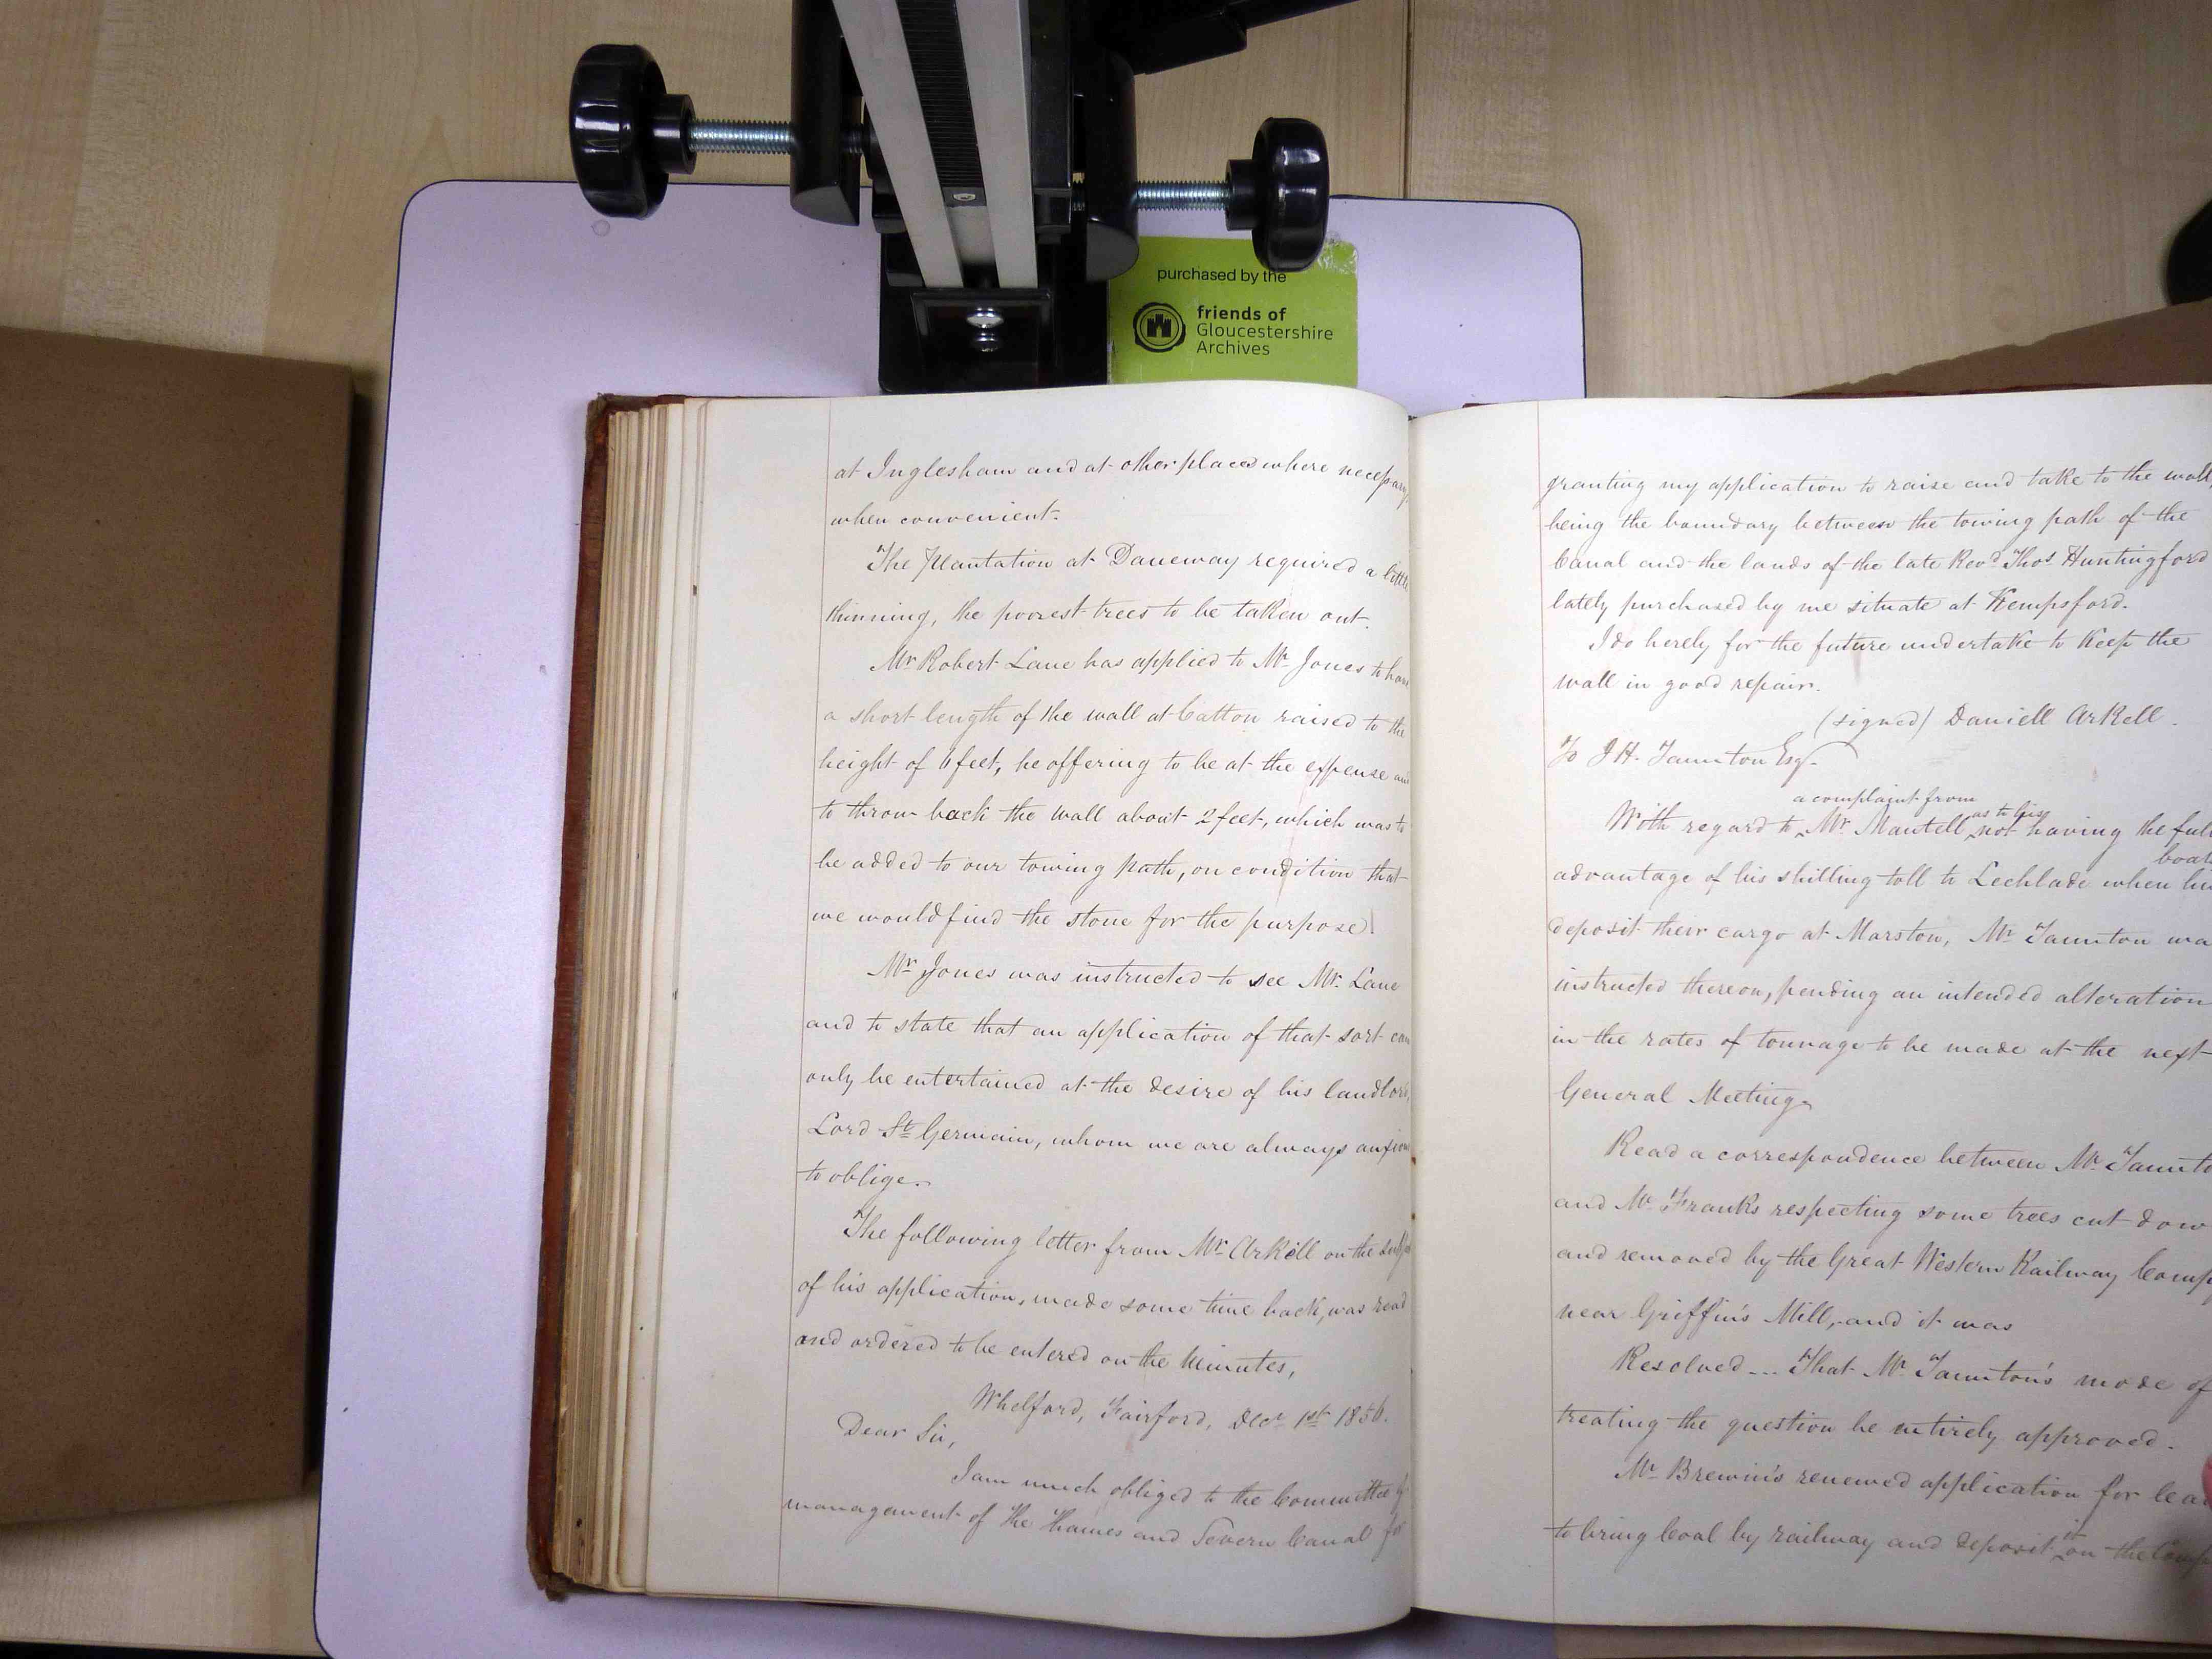 purchased by the
friends of
Gloucestershire
Archives
at Inglesham and at other places where necessary
when convenient.
The Plantation at Daneway required a little
thinning, the poorest trees to be taken out.
Mr Robert Lane has applied to Mr Jones to have
a short length of the wall at Catton raised to the
height of 6 feet, he offering to be at the expense
to throw back the wall about 2 feet, which was to
be added to our towing path, on condition that
we would find the stone for the purpose
Mr Jones was instructed to see Mr Lane
and to state that an application of that sort can
only be entertained at the desire of his landlord,
Lord St Germain, whom we are always anxious
to oblige.
The following letter from Mr Arkell on the
of his application, made some time back, was read
and ordered to be entered on the Minutes,
Whelford, Fairford, Decr 1st 1856.
Dear Sir,
I am much obliged to the Committee
management of the Thames and Severn Canal for
granting my application to raise and take to the wall,
being the boundary between the towing path of the
Canal and the lands of the late Revd Thos Huntingford
lately purchased by me situate at Kempsford.
I do herely for the future undertake to keep the
wall in good repair.
(signed) Daniell Arkell.
To J H. Taunton Esq.
a complaint from
With regard to Mr Mantell as to his not having the full
boats
advantage of his shilling toll to Lechlade when his
deposit their cargo at Marston, Mr Taunton was
instructed thereon, pending an intended alteration
in the rates of tonnage to be made at the next
General Meeting.
Read a correspondence between Mr Taunton
and Mr Franks respecting some trees cut down
and removed by the Great Western Railway Comp
near Griffin's Mill, and it was
Resolved --- That Mr Taunton's mode of
treating the question be entirely approved.
Mr Brewin's renewed application for leave
to bring Coal by railway and deposit it on the Comp